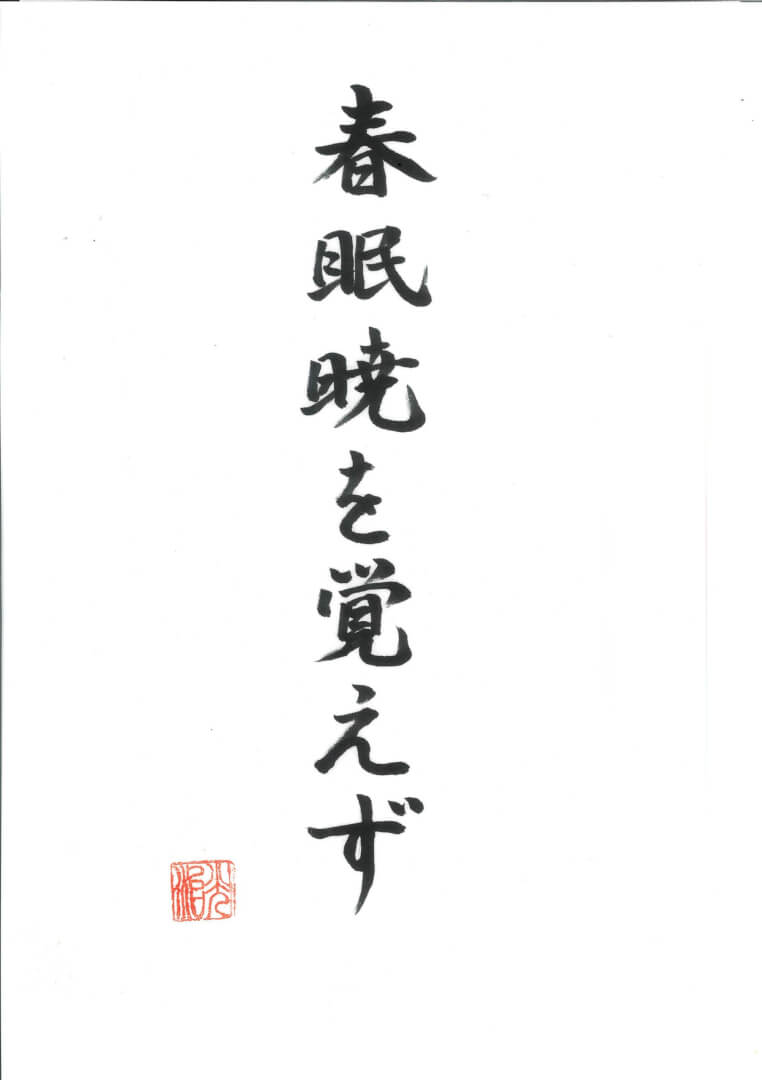 春眠暁を覚えず